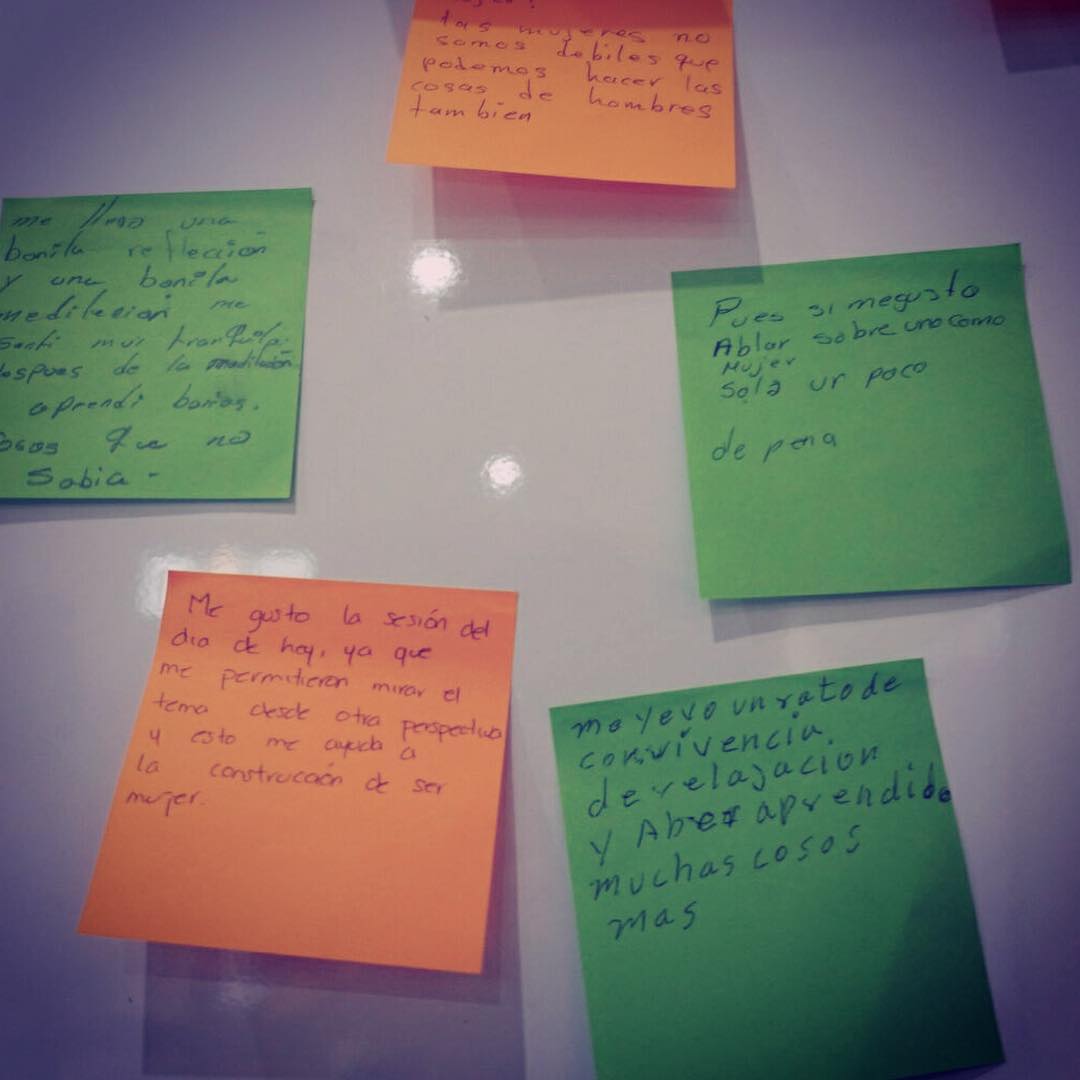 las mujeres no
somos debiles que
podemos hacer las
cosas de hombres
tambien
me llevo una
bonita reflección
y una bonita
meditación me
senti muy tranquila.
despues de la meditación
aprendi barias.
cosas que no
sabia -
Pues si megusto
Ablar sobre unocomo
Mujer
Sola ur poco
de pena
Me gusto la sesión del
dia de hoy, ya que
me permitieron mirar el
tema desde otra perspectiva
y esto me ayuda a
la construcción de ser
mujer.
me yevo un rato de
convivencia.
de relajacion
y Aber aprendido
muchas cosos
mas